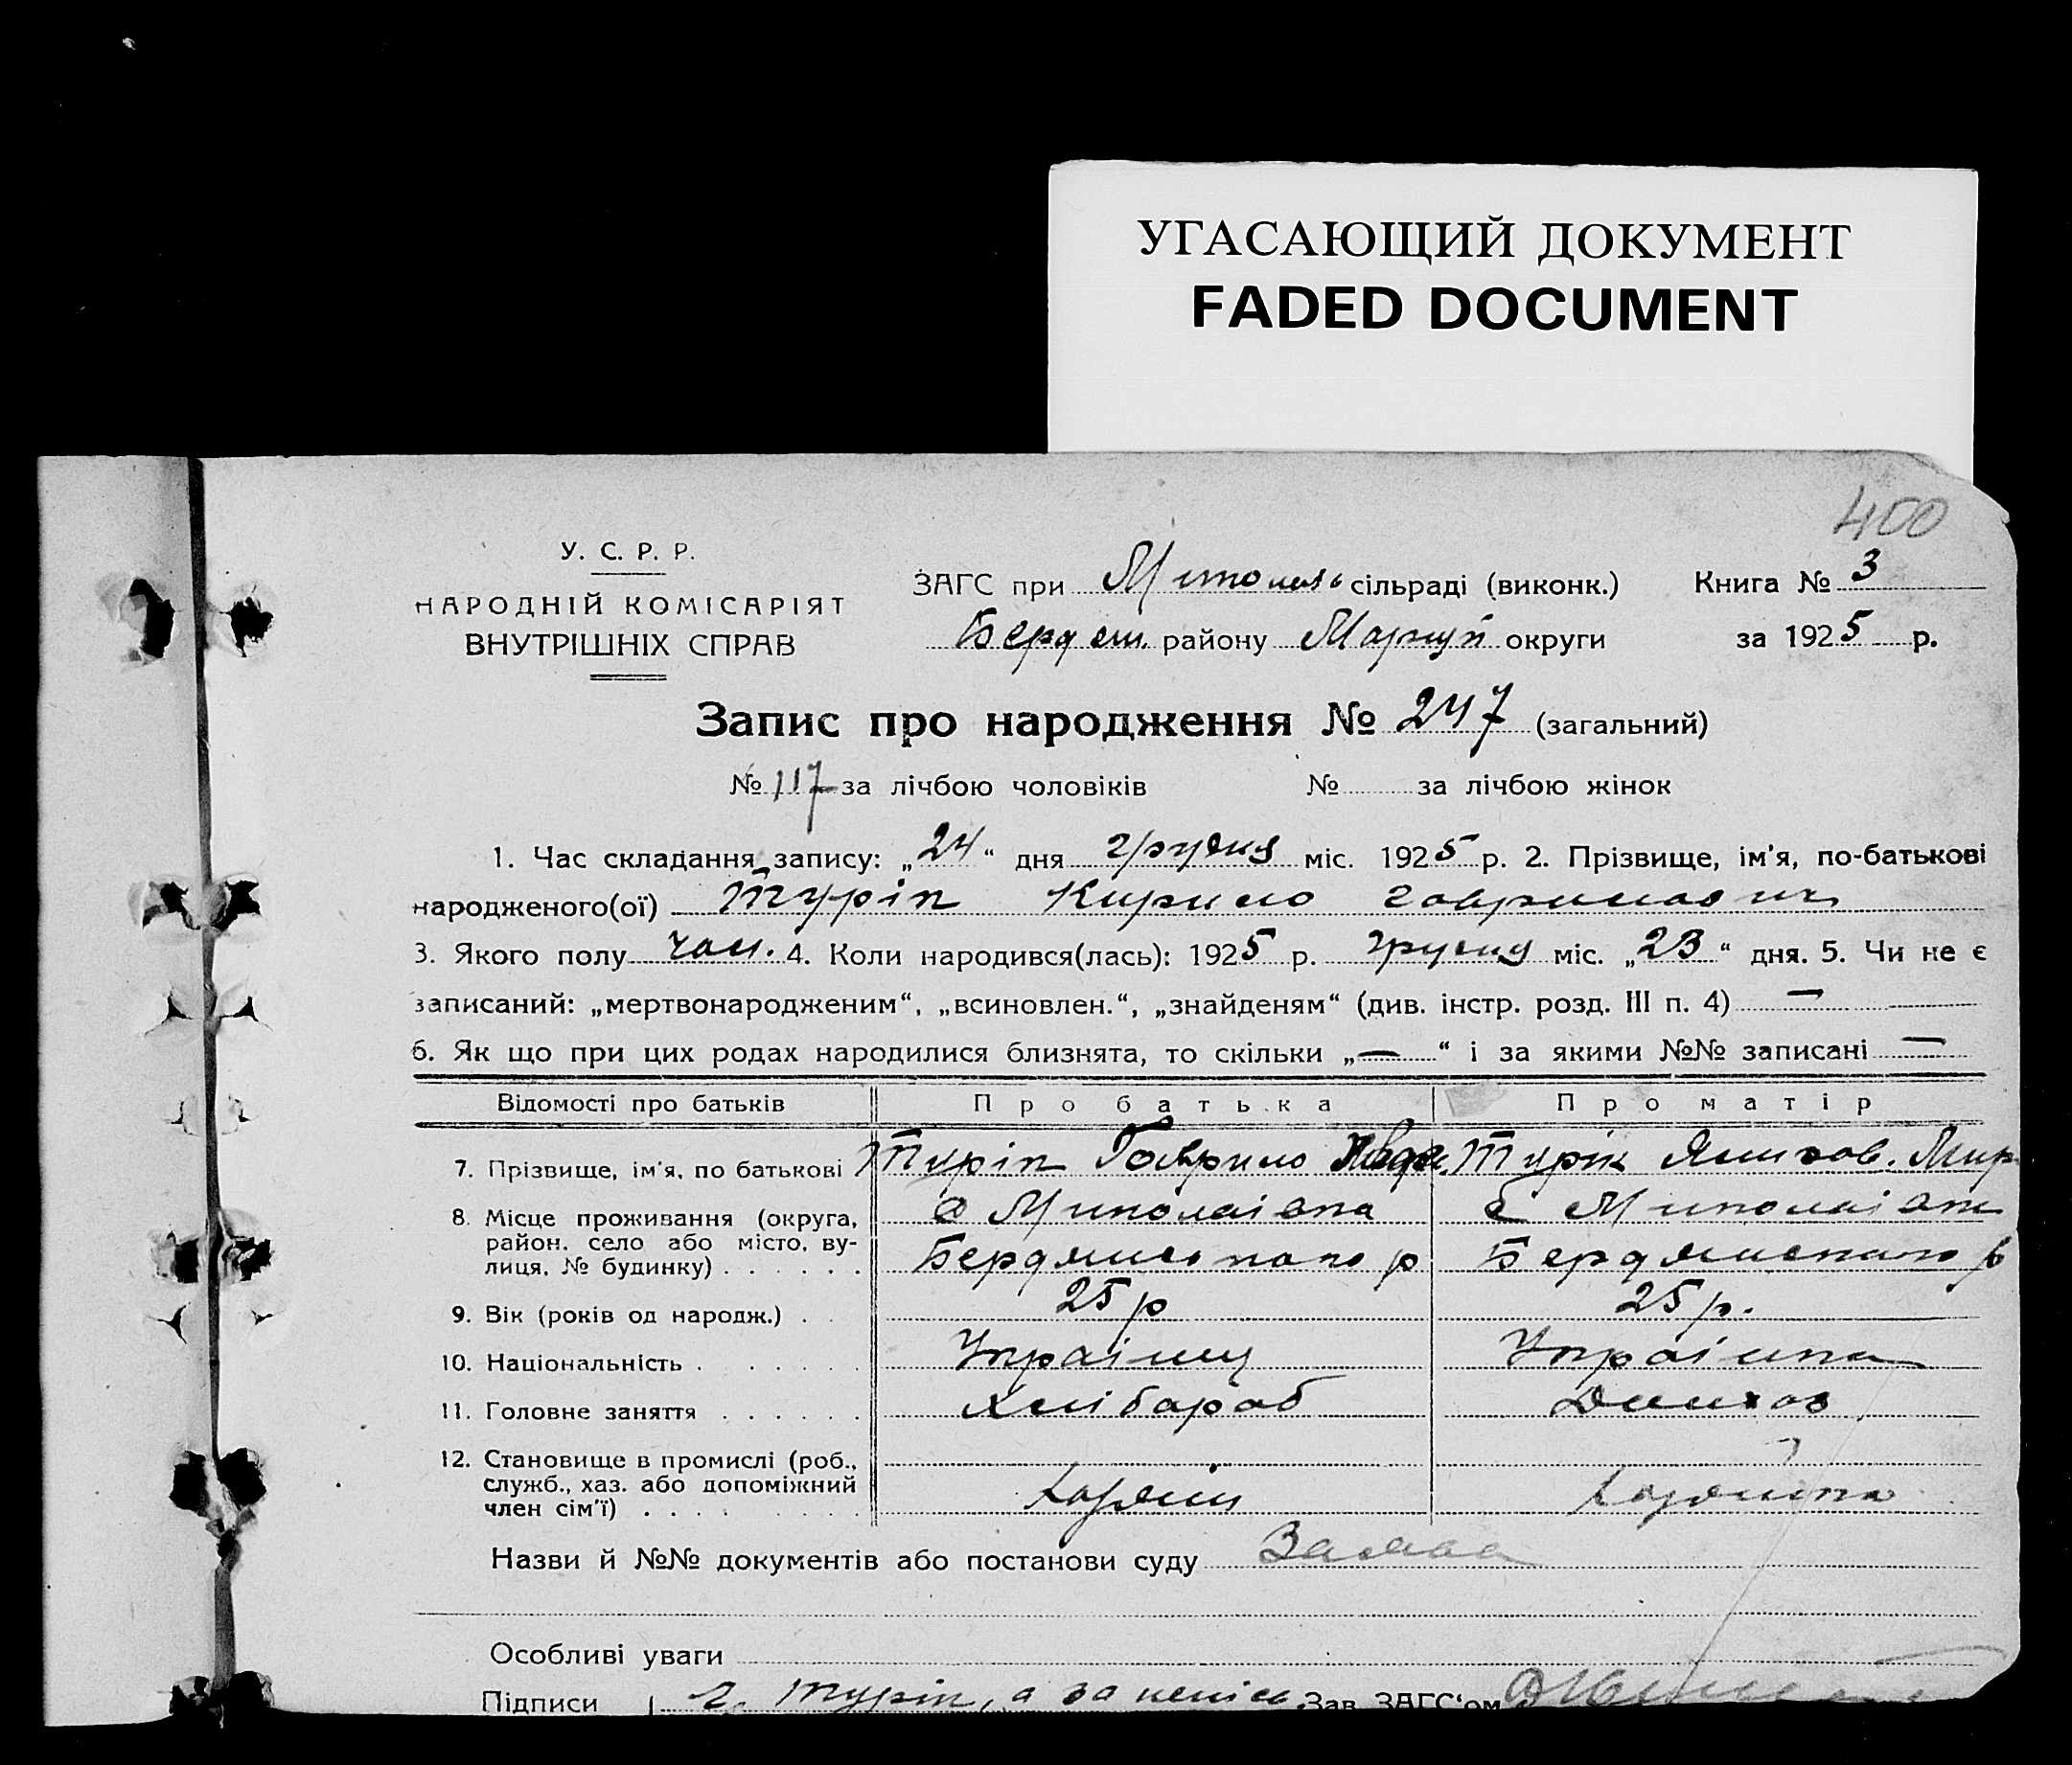 УГАСАЮЩИЙ ДОКУМЕНТ
FADED DOCUMENT
400
У. С. Р. Р.
НАРОДНІЙ КОМІСАРІЯТ
ВНУТРІШНІХ СПРАВ
ЗАГС при сільраді (виконк.) Книга № 3
Бердян. району Маріуп округи за 1925 р.
Запис про народження № 247 (загальний)
№ 117 за лічбою чоловіків № за лічбою жінок
1. Час складання запису: „24“ дня грудня міс. 1925 р. 2. Прізвище, ім'я, по-батькові
народженого(ої) Турік Кирило Гаврилович
3. Якого полу чол. 4. Коли народився(лась): 1925 р. грудня міс. „23“ дня. 5. Чи не є
записаний: „мертвонародженим“, „всиновлен.“, „знайденям“ (див. інстр. розд. III п. 4) —
6. Як що при цих родах народилися близнята, то скільки „—“ і за якими №№ записані —
Відомості про батьків Про батька Про матір
7. Прізвище, ім'я, по батькові Турік Гаврило Турік
8. Місце проживання (округа, район, село або місто, вулиця, № будинку) с Миколаівка с Миколаівки
Бердянського р Бердянського р
9. Вік (років од народж.) 25 р 25 р.
10. Національність Украінец Украінка
11. Головне заняття Хлібороб Домхоз
12. Становище в промислі (роб., служб., хаз. або допоміжний член сім'ї) Хазяін Хазяйка
Назви й №№ документів або постанови суду Заява
Особливі уваги
Підписи Г. Турік, а за Зав. ЗАГС'ом